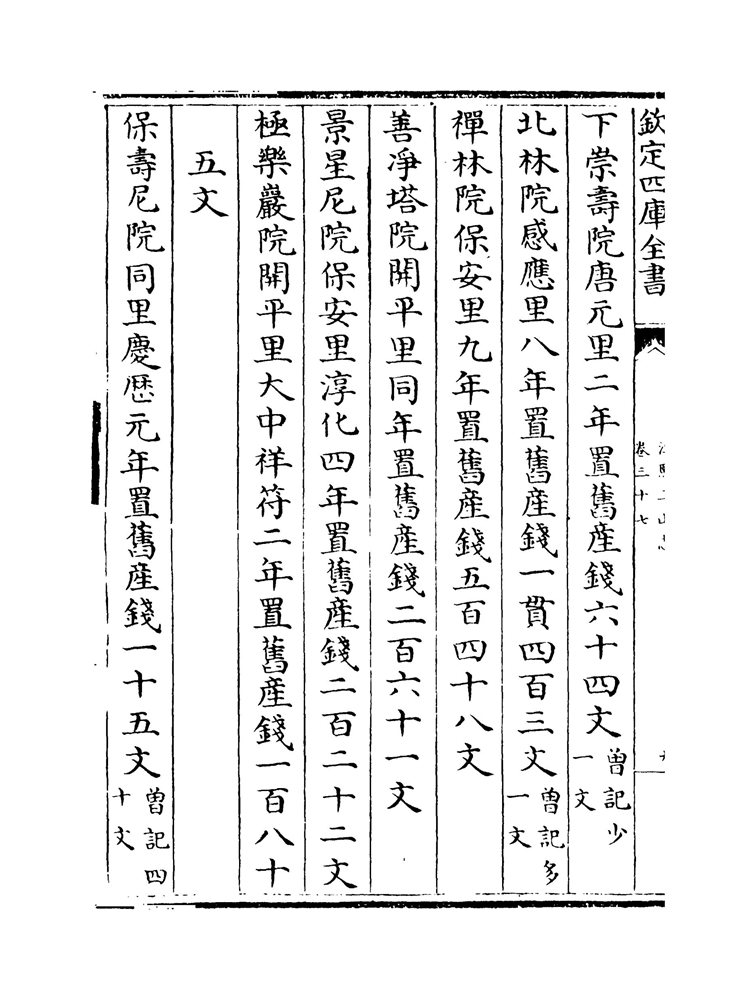 欽定四庫全書
卷三十七
下崇壽院唐元里二年置舊産錢六十四文曽記少一文
北林院感應里八年置舊産錢一貫四百三文曽記多一文
禪林院保安里九年置舊産錢五百四十八文
善淨塔院開平里同年置舊産錢二百六十一文
景星尼院保安里淳化四年置舊産錢二百二十二文
極樂巖院開平里大中祥符二年置舊産錢一百八十
五文
保壽尼院同里慶歴元年置舊産錢一十五文曽記四十文